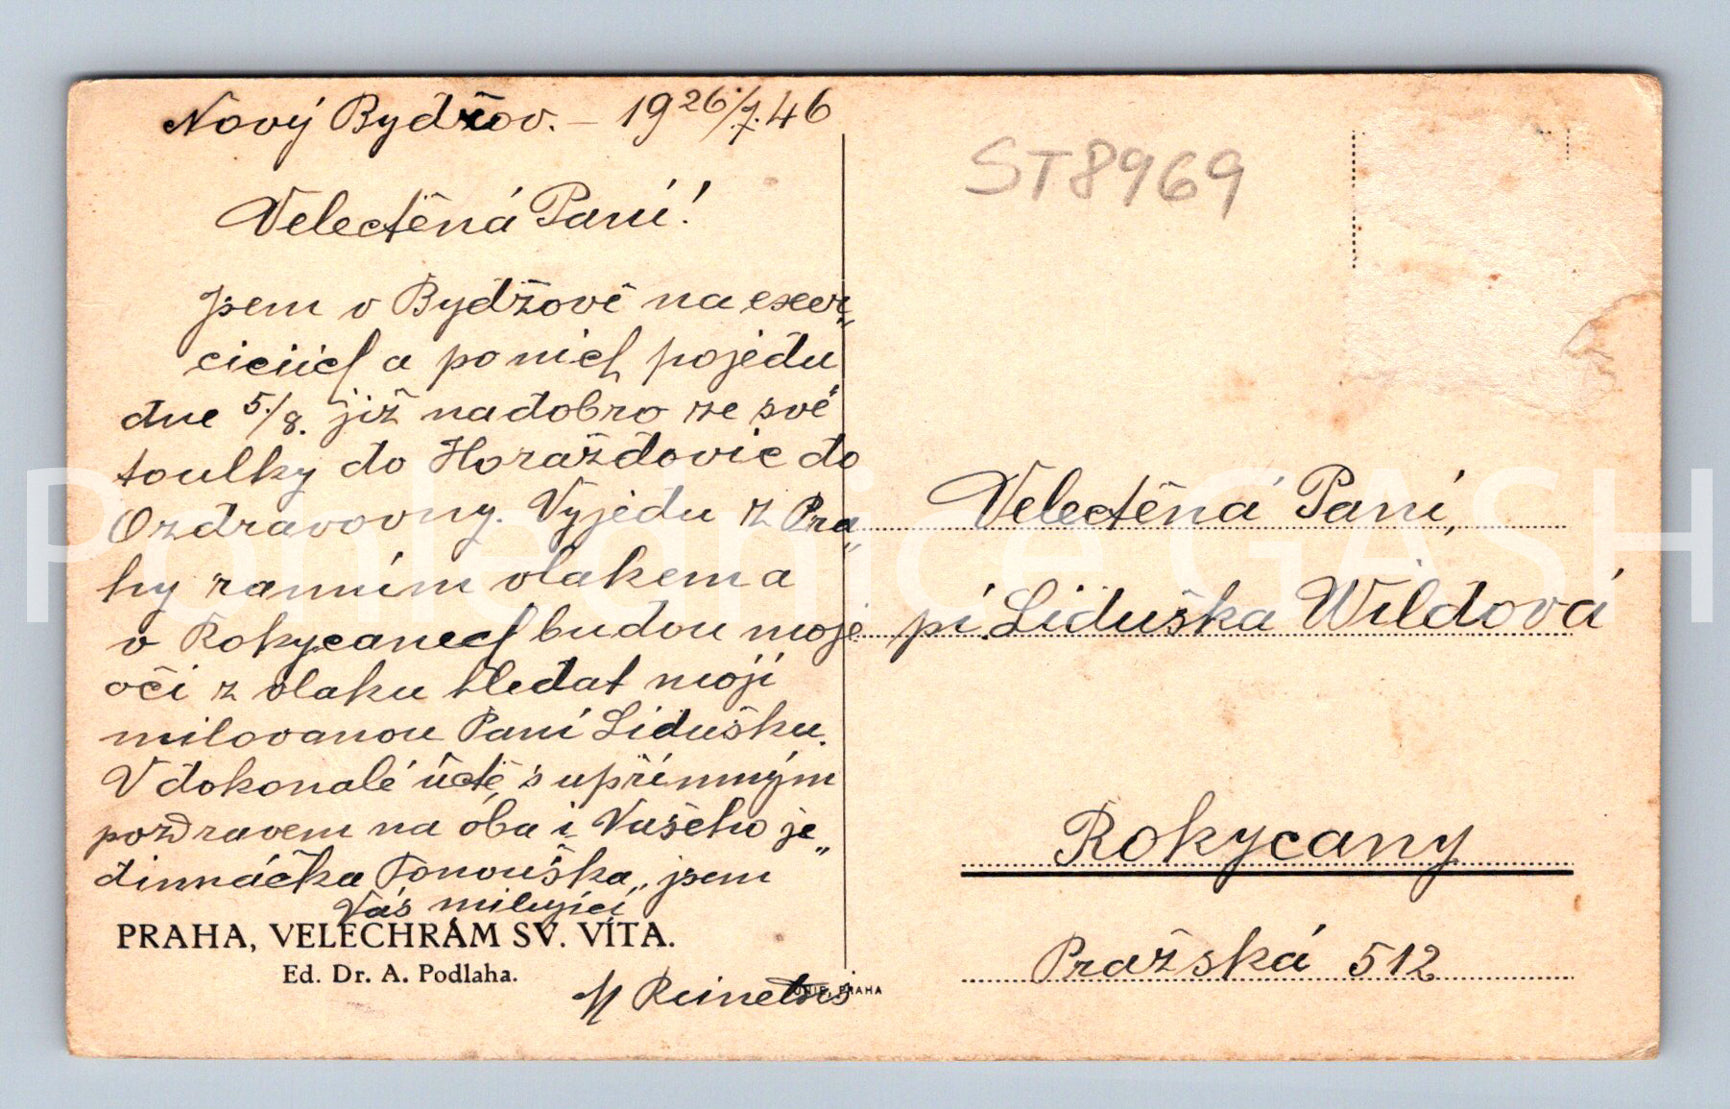 Nový Bydžov. – 19 26./7. 46
Velectěná Paní!
Jsem v Bydžově na exer„
ciciích a po nich pojedu
dne 5./8. již nadobro ze své
toulky do Horažďovic do
Ozdravovny. Vyjedu z Pra„
hy ranním vlakem a
v Rokycanech budou moje
oči z vlaku hledat moji
milovanou Paní Lidušku.
V dokonalé úctě, s upřímným
pozdravem na oba i Vašeho je„
dináčka Tonouška, jsem
Vás milující
M
PRAHA, VELECHRÁM SV. VÍTA.
Ed. Dr. A. Podlaha.
UNIE, PRAHA
ST8969
Velectěná Paní,
pí. Liduška Wildová
Rokycany
Pražská 512
Pohlednice GASH